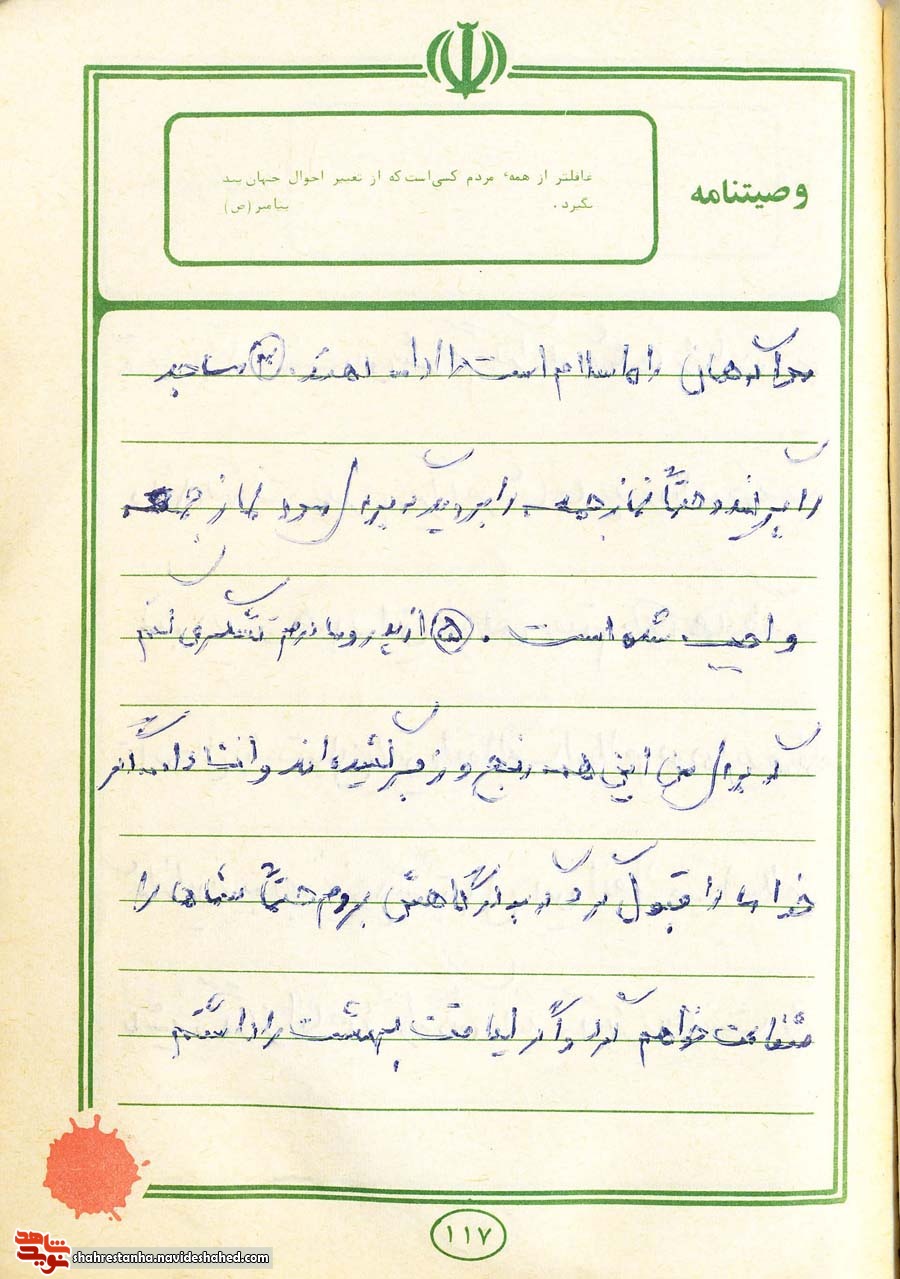 وصیتنامه
عاقلتر از همهٔ مردم کسی است که از تغییر احوال جهان پند
بگیرد. پیامبر (ص)
مرا که همان راه اسلام است را ادامه دهند. ۴ مساجد
را پر کنید و حتماً نماز جمعه را بروید که برای شما نماز جمعه
واجب شده است. ۵ از پدر و مادرم تشکر می کنم
که برای من این همه رنج و زجر کشیده اند و انشاءالله اگر
خدا ما را قبول کرد که به درگاهش بروم حتماً شماها را
شفاعت خواهم کرد و اگر لیاقت بهشت را داشتم
۱۱۷
نوید شاهد
shahrestanha.navideshahed.com